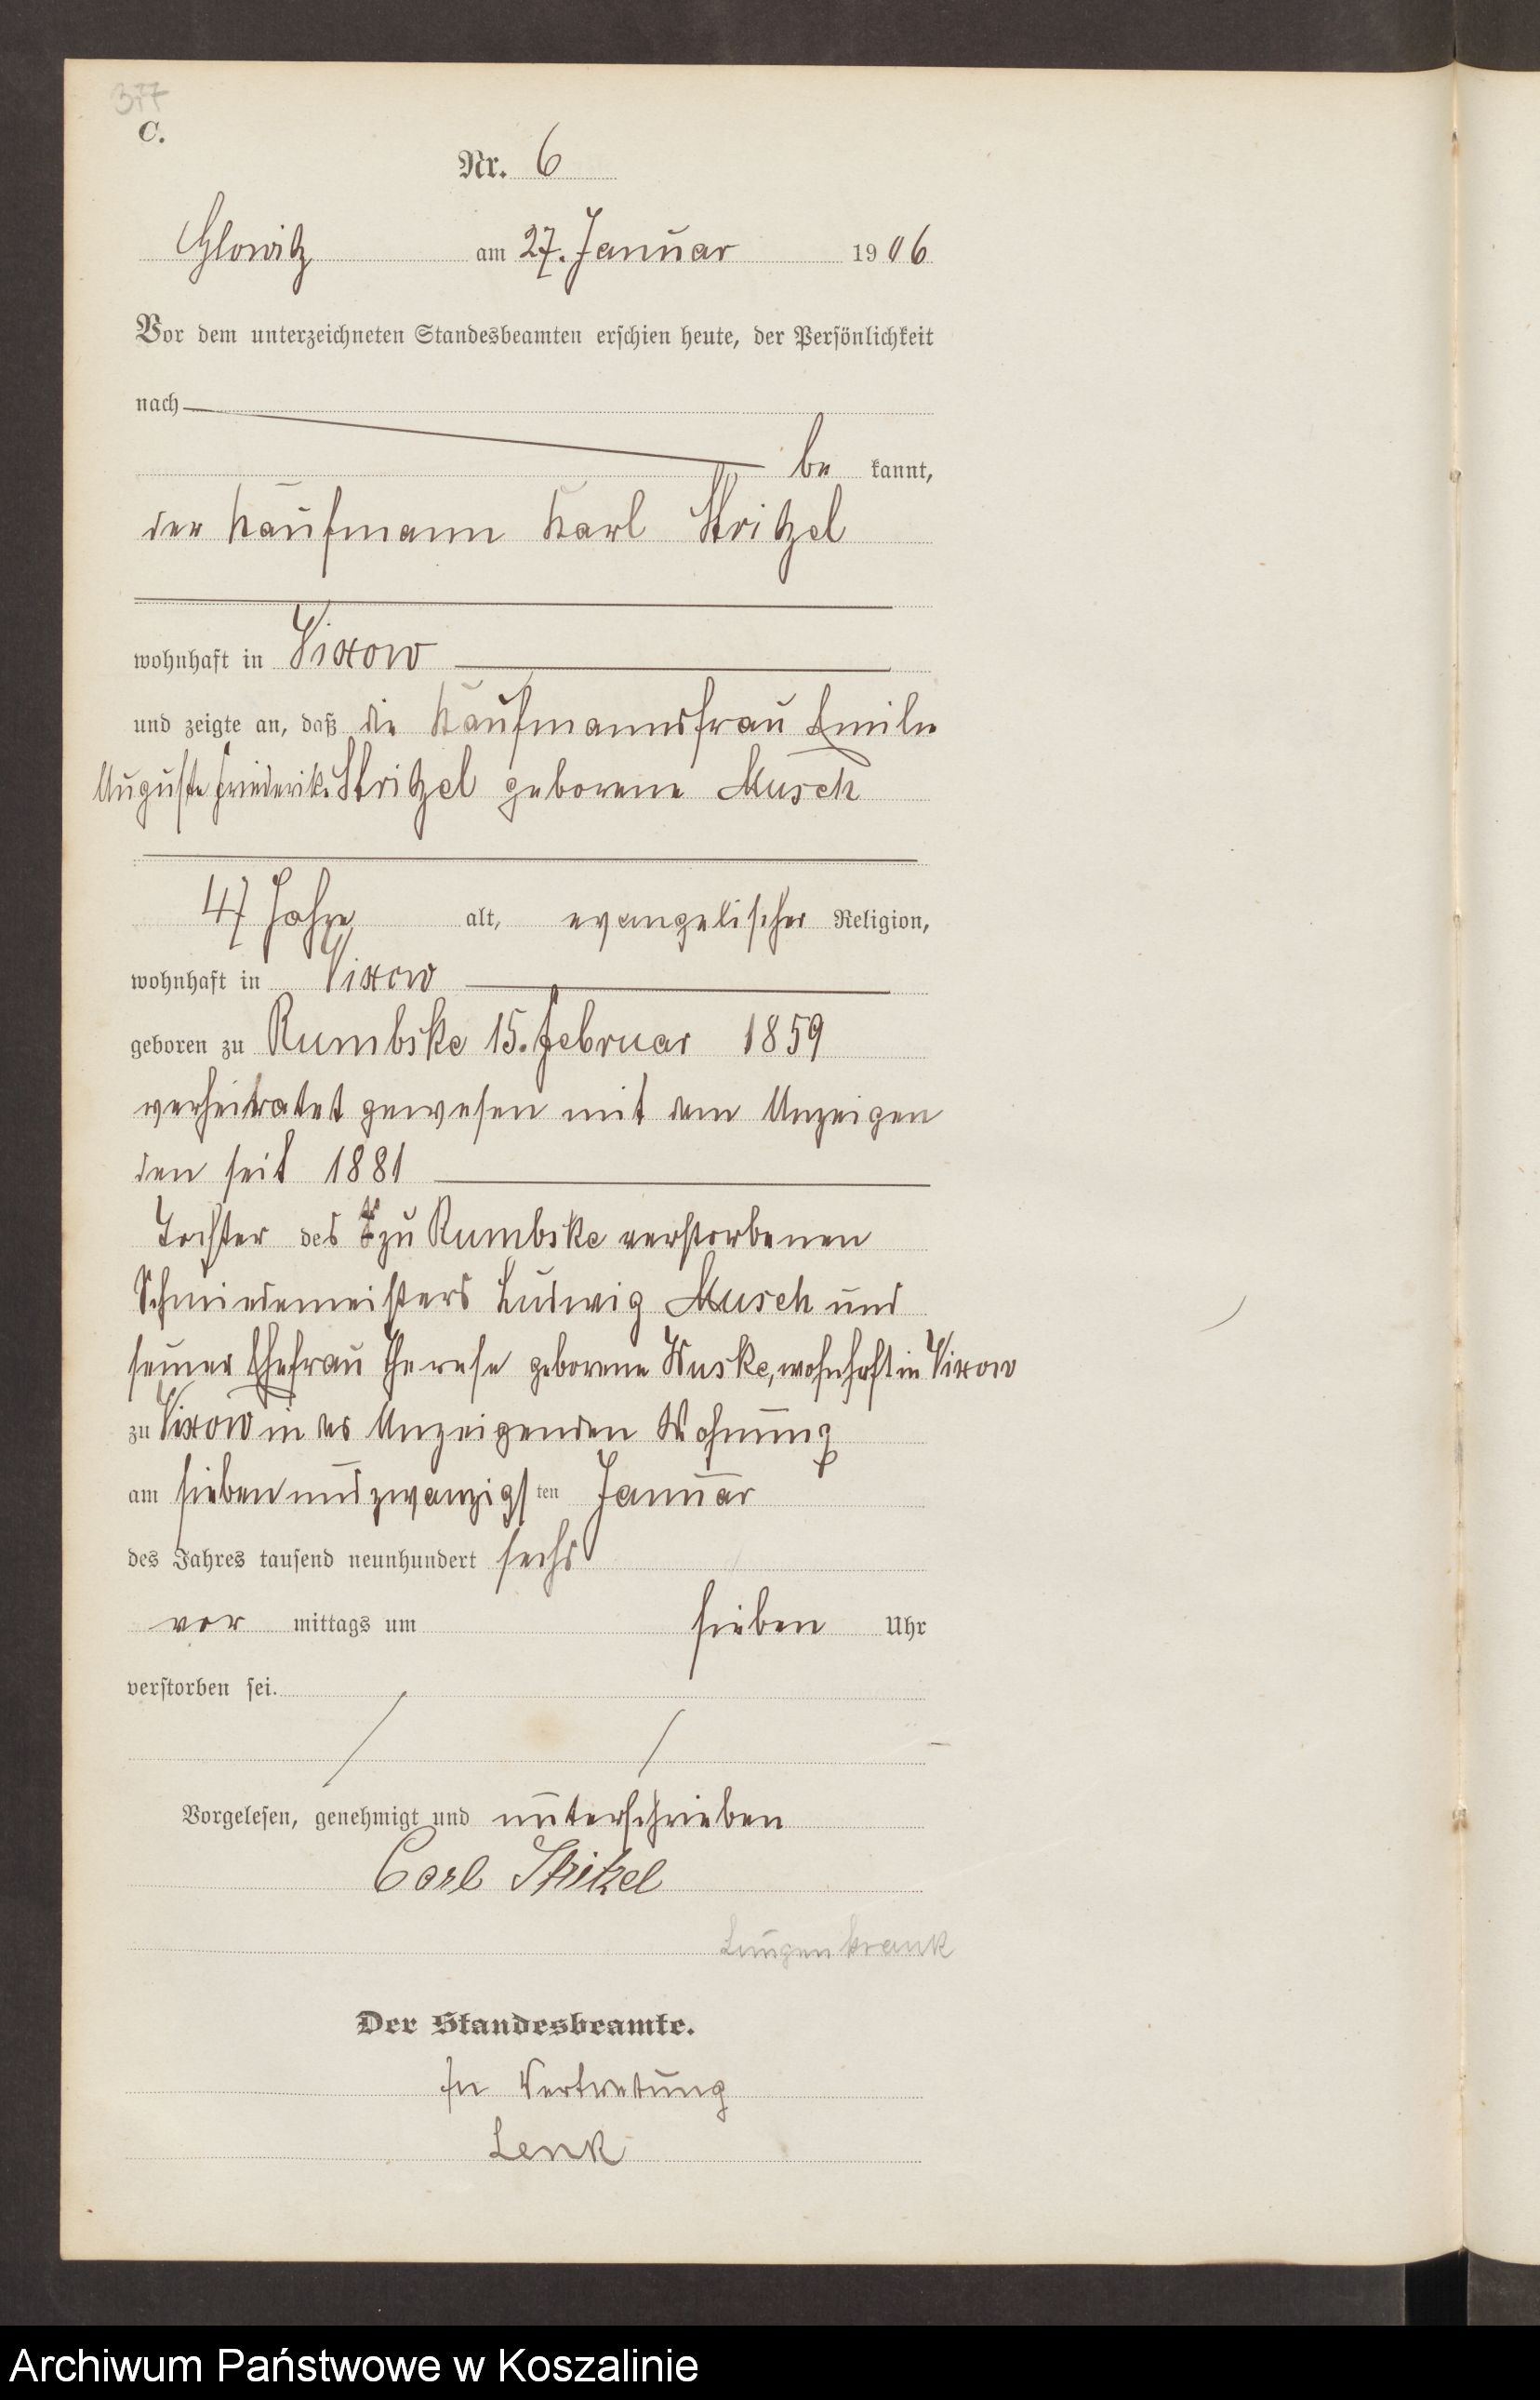 377
C.
Nr. 6
Glowitz am 27. Januar 1906
Vor dem unterzeichneten Standesbeamten erschien heute, der Persönlichkeit
nach
be kannt,
der Kaufmann Karl Stritzel
wohnhaft in Vixow
und zeigte an, daß die Kaufmannsfrau Emilie
Auguste Friederike Stritzel geborene Musch
47 Jahre alt, evangelischer Religion,
wohnhaft in Vixow
geboren zu Rumbske 15. Februar 1859
verheiratet gewesen mit dem Anzeigen
den seit 1881
Tochter des zu Rumbske verstorbenen
Schmiedemeisters Ludwig Musch und
seiner Ehefrau Therese geborene Kuske, wohnhaft in Vixow
zu Vixow in des Anzeigenden Wohnung
am siebenundzwanzigsten Januar
des Jahres tausend neunhundert sechs
vor mittags um sieben Uhr
verstorben sei.
Vorgelesen, genehmigt und unterschrieben
Carl Stritzel
Lungenkrank
Der Standesbeamte.
In Vertretung
Lenk
Archiwum Państwowe w Koszalinie